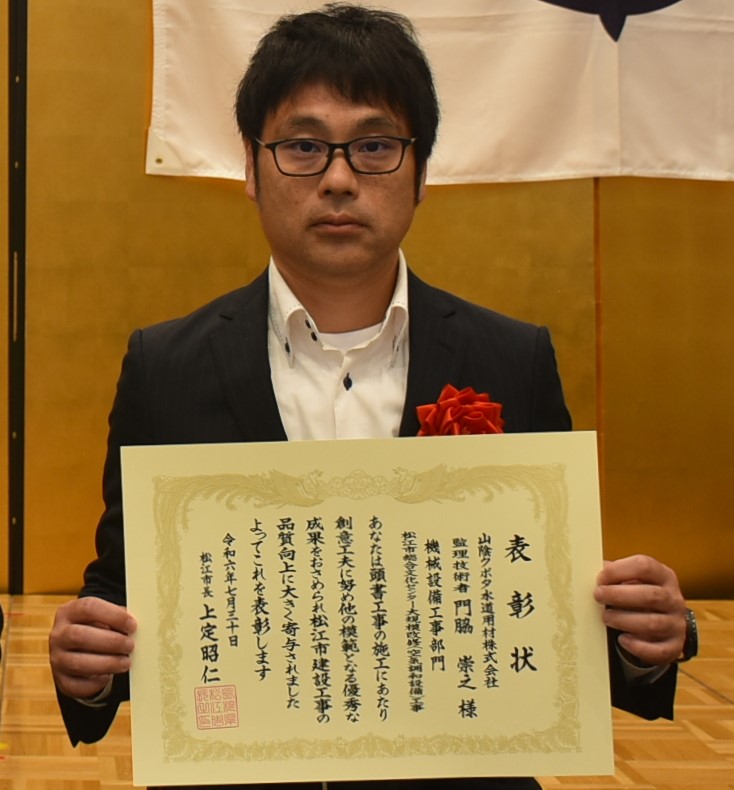 表彰状
山陰クボタ水道用材株式会社
監理技術者 門脇 崇之 様
機械設備工事部門
松江市総合文化センター大規模改修(空気調和設備)工事
あなたは頭書工事の施工にあたり
創意工夫に努め他の模範となる優秀な
成果をおさめられ松江市建設工事の
品質向上に大きく寄与されました
よってこれを表彰します
令和六年七月三十日
松江市長 上定昭仁